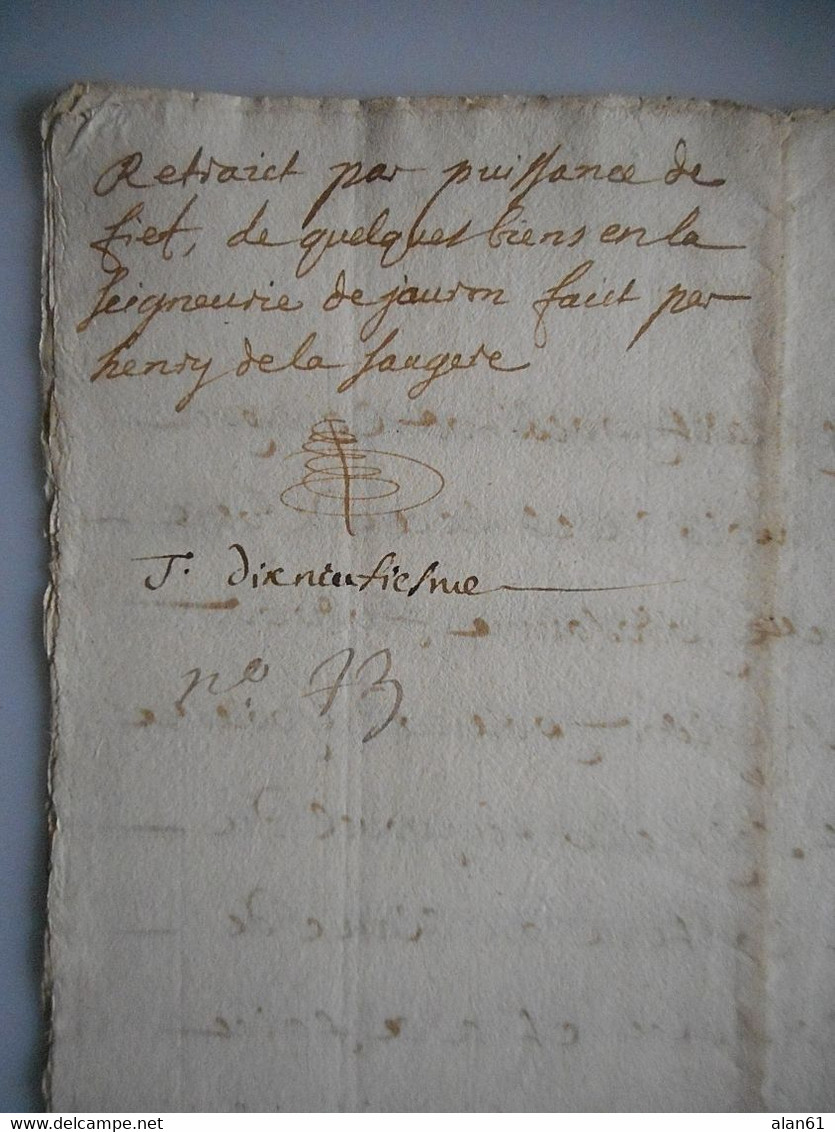 Retraict par puissance de
fief, de quelques biens en la
seigneurie de jauson faict par
henry de la saugere
J. dixneufiesme
no 73
Delcampe.net
alan61